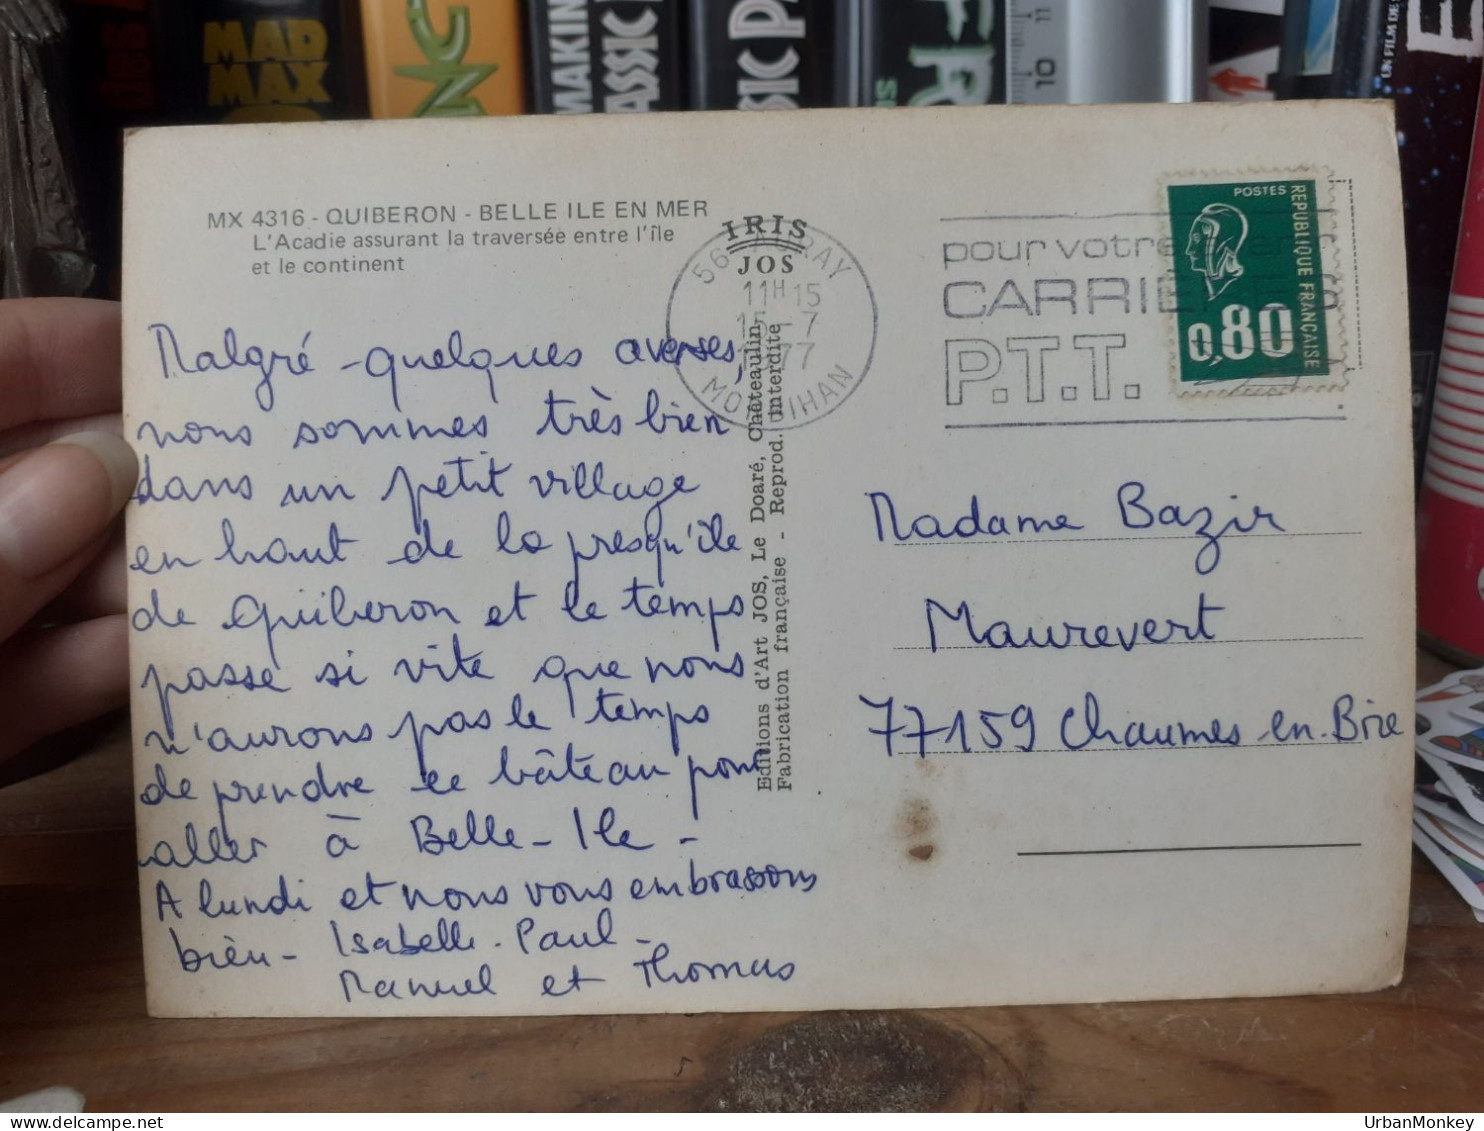 MAD
MAX
MAKIN
ASSIC
SIC P
FR
10
11
UN FILM DE
MX 4316 - QUIBERON - BELLE ILE EN MER
L'Acadie assurant la traversée entre l'île
et le continent
IRIS
JOS
56 AURAY
11H15
15-7
1977
MORBIHAN
pour votre
CARRIE
P.T.T.
POSTES
REPUBLIQUE FRANÇAISE
0,80
Malgré quelques averses,
nous sommes très bien
dans un petit village
en haut de la presqu'île
de Quiberon et le temps
passe si vite que nous
n'aurons pas le temps
de prendre le bâteau pour
aller à Belle-Ile -
A lundi et nous vous embrassons
bien - Isabelle - Paul -
Manuel et Thomas
Editions d'Art JOS, Le Doaré, Châteaulin
Fabrication française - Reprod. interdite
Madame Bazir
Maurevert
77159 Chaumes-en-Brie
UrbanMonkey